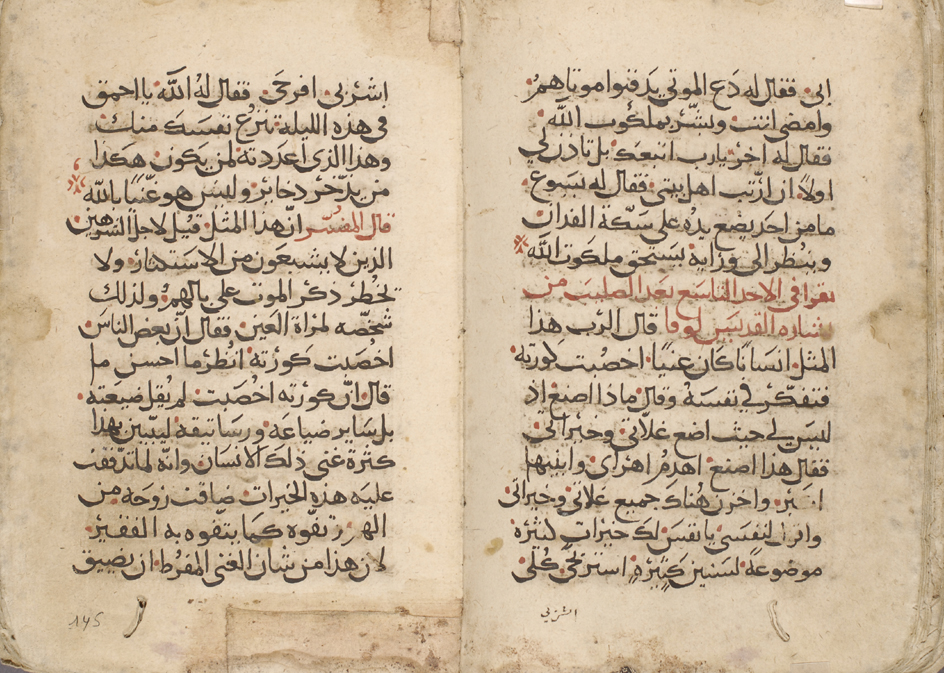 ابى فقال له دع الموتى يدفنوا موتاهم
وامضى انت وبشّر بملكوت الله
فقال له اخر يارب اتبعك بل تاذن لي
اولاً ان ارتب اهل بيتي فقال له يسوع
مامن احد يضع يده على سكّة الفدان
وينظر الى ورايه يستحق ملكوت الله
يقرا في الاحد التاسع بعد الصليب من
بشاره القديس لوقا قال الرب هذا
المثل انسانًا كان غنيًا اخصبت كورته
فتفكر في نفسه وقال ماذا اصنع اذ
ليس لي حيث اضع غلاتي وخيراتي
فقال هذا اصنع اهدم اهراى وابنيها
اكبر واخزن هناك جميع غلاتي وخيراتي
واقول لنفسي يانفس لك خيرات كثيرة
موضوعةً لسنين كثيرةٍ استريحي كلي
اشربي
اشربى افرحى فقال له الله يااحمق
فى هذه الليلة تنزع نفسك منك
وهذا الذى اعددته لمن يكون هكذا
من يذّخر ذخاير وليس هو غنيًا بالله
قال المفسّر انّ هذا المثل قيل لاجل الشرهين
الذين لايشبعون من الاستكثار ولا
يخطر ذكر الموت على بالهم ولذلك
شخصّه لمراة العين فقال انّ بعض الناس
اخصبت كورته انظر ما احسن ما
قال انّ كورته اخصبت لم يقل ضيعته
بل ساير ضياعه ورساتيقه ليبين بهذا
كثرة غنى ذلك الانسان وانّه لما تدفقت
عليه هذه الخيرات ضاقت روحه من
الهم تفوه كما يتفوه به الفقير
لان هذا من شان الغنى المفرط ان يضيق
145